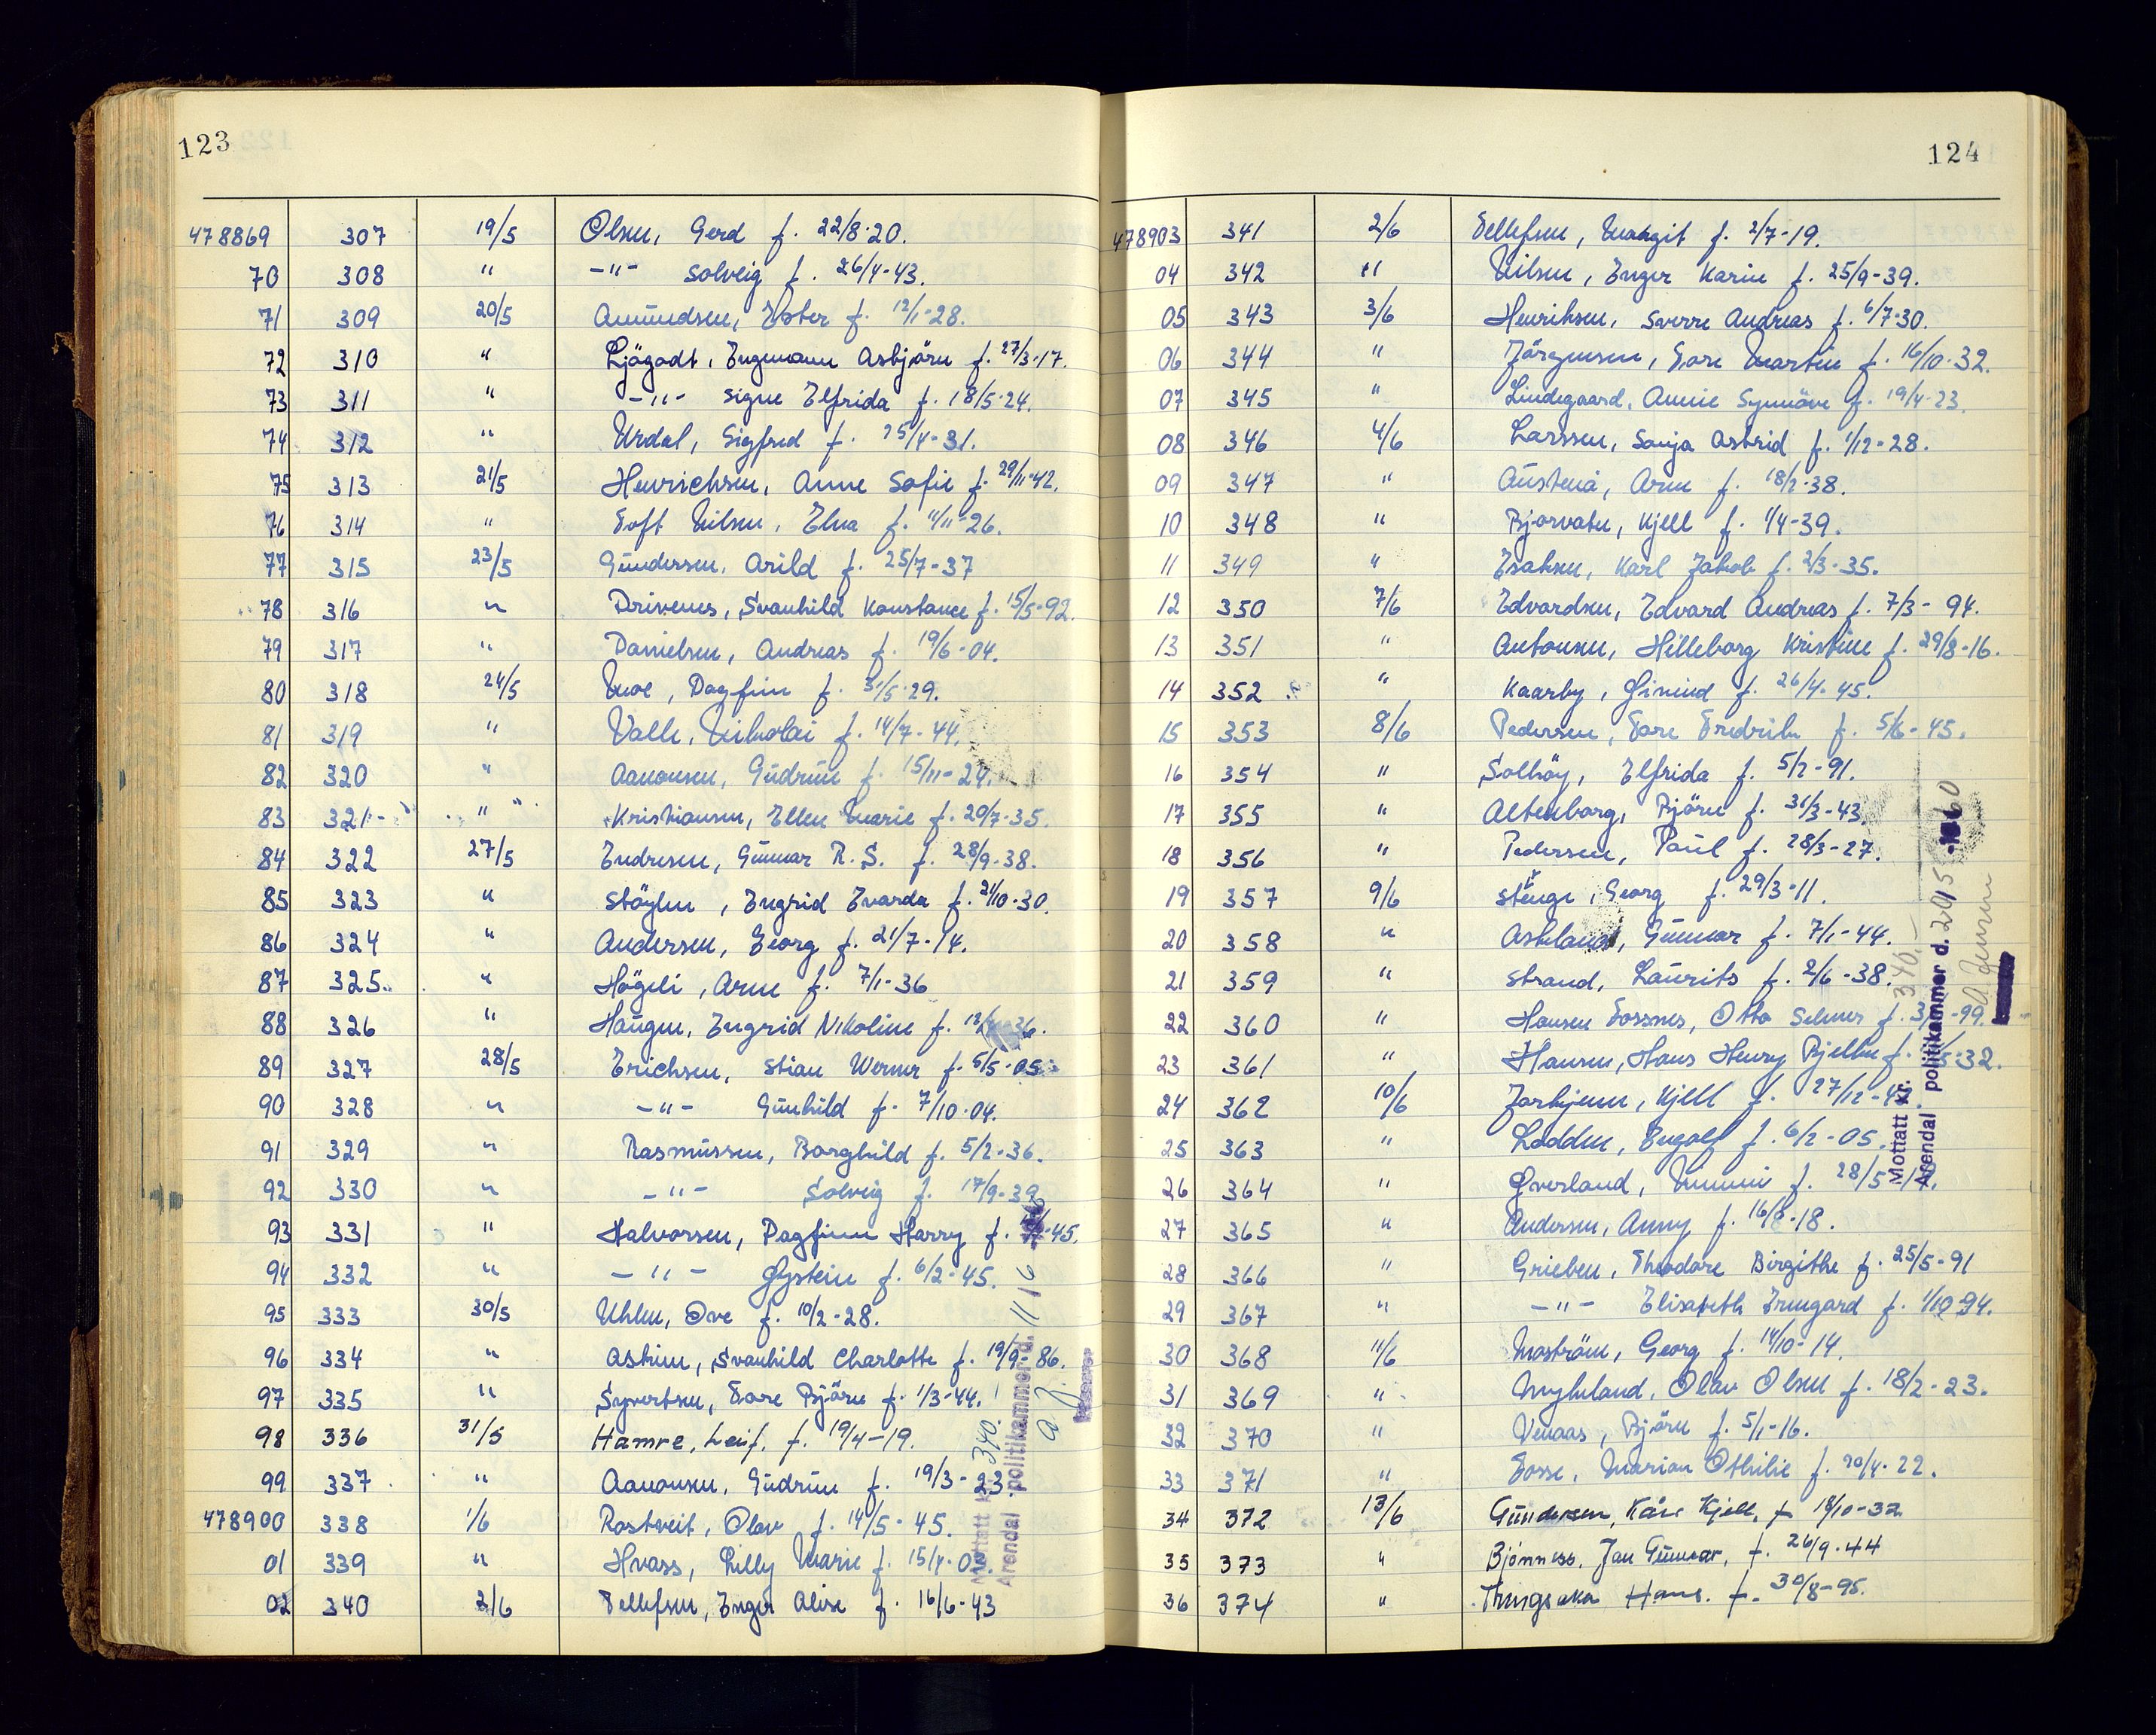 123
478869 307 19/5 Olsen, Gerd f. 22/8-20.
70 308 " -"- Solveig f. 26/4-43.
71 309 20/5 Aamundsen, Ester f. 12/1-28.
72 310 " Ljögodt, Ingemann Asbjörn f. 27/3-17.
73 311 " -"- Signe Elfrida f. 18/5-24.
74 312 " Urdal, Sigfred f. 25/4-31.
75 313 21/5 Henrichsen, Anne Sofie f. 29/11-42.
76 314 " Toft Nilsen, Elna f. 11/11-26.
77 315 23/5 Gundersen, Arild f. 25/7-37
78 316 " Drivenes, Svanhild Konstance f. 15/5-92.
79 317 " Danielsen, Andreas f. 19/6-04.
80 318 24/5 Moe, Dagfinn f. 31/5-29.
81 319 " Valle, Nikolai f. 14/7-44.
82 320 " Aanonsen, Gudrun f. 15/11-24.
83 321 " Kristiansen, Ellen Marie f. 29/7-35.
84 322 27/5 Endresen, Gunnar R. S. f. 28/9-38.
85 323 " Stöylen, Ingrid Evarda f. 21/10-30.
86 324 " Andersen, Georg f. 21/7-14.
87 325 " Högeli, Arne f. 7/1-36
88 326 " Haugen, Ingrid Nikoline f.
89 327 28/5 Erichsen, Stian Werner f. 5/5-05
90 328 " -"- Gunhild f. 7/10-04.
91 329 " Rasmussen, Borghild f. 5/2-36.
92 330 " -"- Solveig f. 17/9-39
93 331 " Halvorsen, Dagfinn Harry f. -45.
94 332 " -"- Øystein f. 6/2-45.
95 333 30/5 Uhlen, Ove f. 10/2-28.
96 334 " Askim, Svanhild Charlotte f. 19/9-86.
97 335 " Syvertsen, Tore Björn f. 1/3-44.
98 336 31/5 Hamre, Leif. f. 19/4-19.
99 337 " Aanonsen, Gudrun f. 19/3-23.
478900 338 1/6 Rostveit, Olav f. 14/5-45.
01 339 " Hvass, Lilly Marie f. 15/4-0
02 340 2/6 Tellefsen, Inger Alise f. 16/6-43
Mottatt kr. 340.
Arendal politikammer d. 11/6
124
478903 341 2/6 Tellefsen, Margit f. 2/7-19.
04 342 " Nilsen, Inger Karin f. 25/9-39.
05 343 3/6 Henriksen, Sverre Andreas f. 6/7-30.
06 344 " Jörgensen, Tore Martin f. 16/10-32.
07 345 " Lindegaard, Annie Synnöve f. 19/4-23.
08 346 4/6 Larssen, Sonja Astrid f. 1/12-28.
09 347 " Austenå, Arne f. 18/2-38.
10 348 " Bjorvatn, Kjell f. 1/4-39.
11 349 " Isaksen, Karl Jakob f. 2/3-35.
12 350 7/6 Edvardsen, Edvard Andreas f. 7/3-94.
13 351 " Antonsen, Hilleborg Kristine f. 29/8-16.
14 352 " Kaarby, Øivind f. 26/4-45.
15 353 8/6 Pedersen, Tore Fredrik f. 5/6-45.
16 354 " Solhöy, Elfrida f. 5/2-91.
17 355 " Altenborg, Björn f. 31/3-43.
18 356 " Pedersen, Paul f. 28/3-27.
19 357 9/6 Georg f. 29/3-11.
20 358 " Askeland, Gunnar f. 7/1-44.
21 359 " Strand, Laurits f. 2/6-38.
22 360 " Hansen Fossnes, Otto Selmer f. -99.
23 361 " Hansen, Hans Henry Bjelke f. -32.
24 362 10/6 Torkjenn, Kjell f. 27/12-4
25 363 " Lodden, Ingolf f. 6/2-05.
26 364 " Øverland, f. 28/5-17.
27 365 " Andersen, Anny f. 16/8-18.
28 366 " Grieben, Theodore Birgithe f. 25/5-91
29 367 " -"- Elisabeth Irmgard f. 1/10-94.
30 368 11/6 Moström, Georg f. 14/10-14.
31 369 " Mykland, Olav Olsen f. 18/2-23.
32 370 " Venaas, Björn f. 5/1-16.
33 371 " Fosse, Marian Othilie f. 20/4-22.
34 372 13/6 Gundersen, Kåre Kjell, f. 18/10-32
35 373 " Bjönness, Jan Gunnar, f. 26/9-44
36 374 " Hans. f. 30/8-95.
Mottatt kr. 340,-
Arendal politikammer d. 60